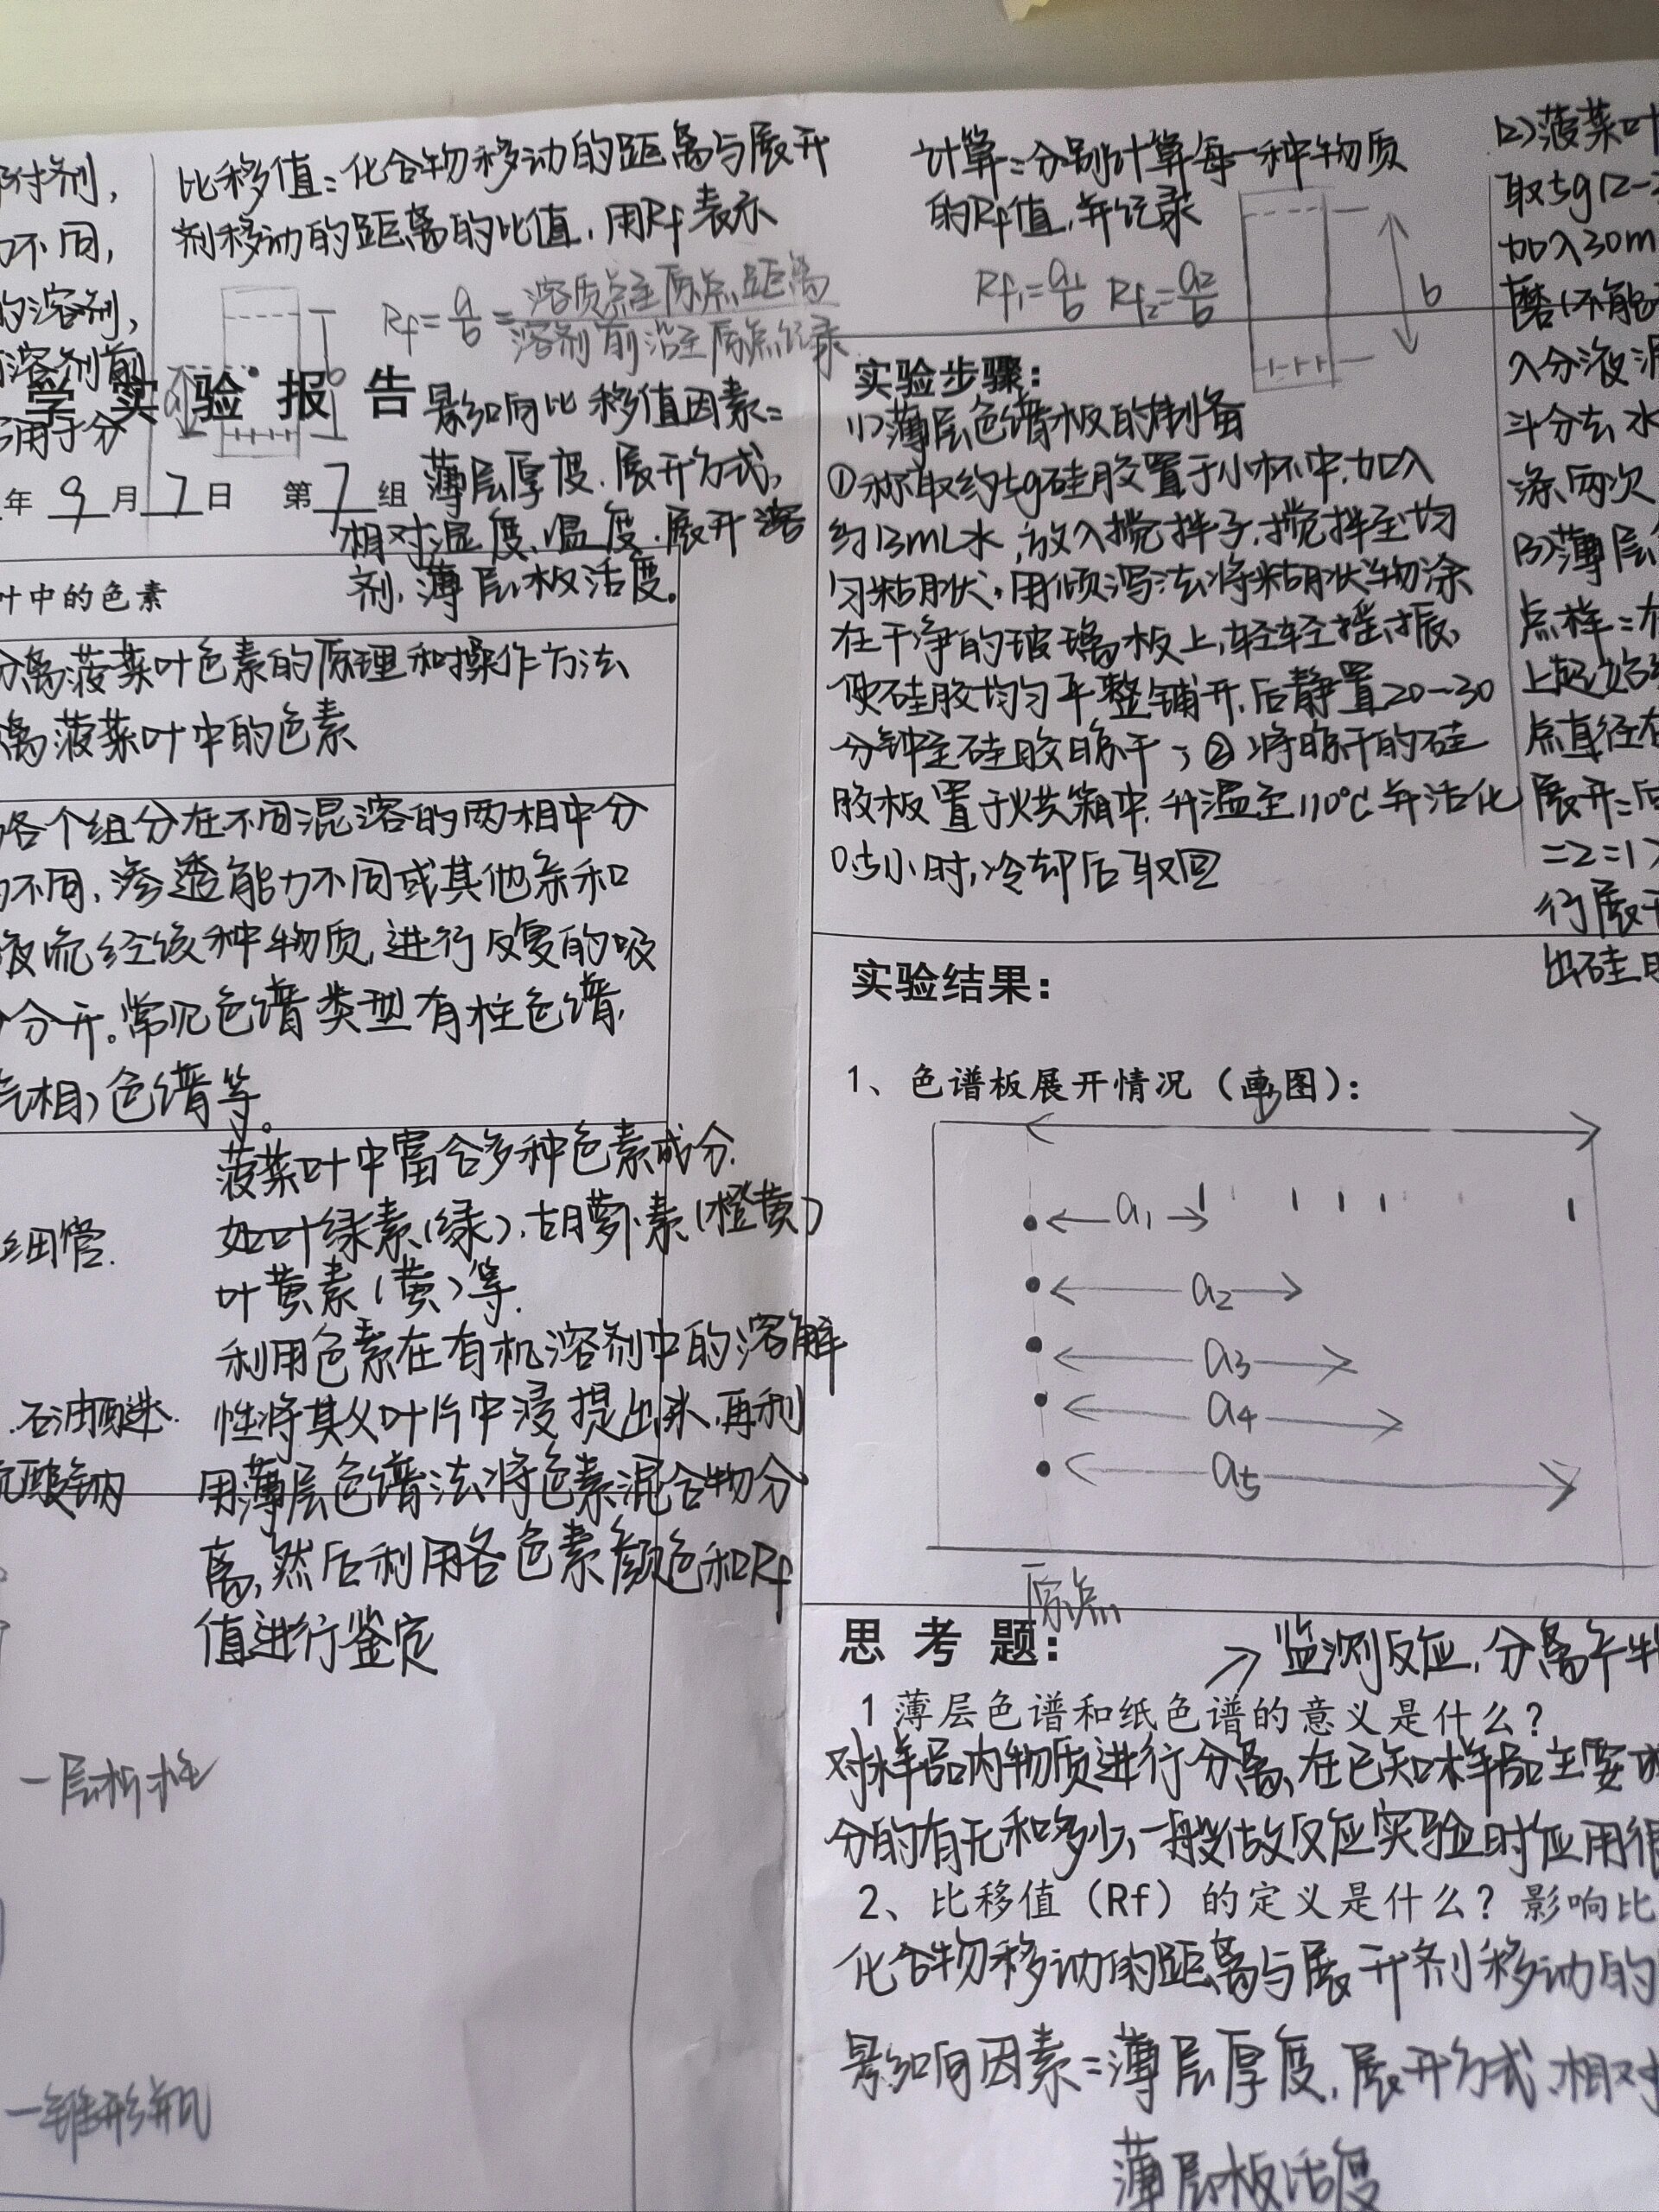 附剂,
力不同,
的溶剂,
溶剂前
用于分
比移值:化合物移动的距离与展开
剂移动的距离的比值,用Rf表示
Rf=a/b=溶质点至原点距离/溶剂前沿至原点记录
a
学 实 验 报 告
影响比移值因素:
薄层厚度、展开方式,
相对湿度、温度、展开溶
剂,薄层板活度。
年 9 月 7 日 第 7 组
叶中的色素
分离菠菜叶色素的原理和操作方法
离菠菜叶中的色素
各个组分在不同混溶的两相中分
不同,渗透能力不同或其他亲和
液流经该种物质,进行反复的吸
分开。常见色谱类型有柱色谱,
气相)色谱等。
细管.
石油醚.
硫酸钠
菠菜叶中富含多种色素成分.
如叶绿素(绿),胡萝卜素(橙黄)
叶黄素(黄)等.
利用色素在有机溶剂中的溶解
性将其从叶片中浸提出来,再利
用薄层色谱法将色素混合物分
离,然后利用各色素颜色和Rf
值进行鉴定
一层析柱
一锥形瓶
计算:分别计算每一种物质
的Rf值,并记录
Rf1=a1/b Rf2=a2/b
b
实验步骤:
(1)薄层色谱板的制备
①称取约5g硅胶置于小杯中,加入
约13mL水,放入搅拌子,搅拌至均
匀粘状,用倾泻法将粘状物涂
在干净的玻璃板上,轻轻摇振,
使硅胶均匀平整铺开,后静置20-30
分钟至硅胶晾干;②将晾干的硅
胶板置于烘箱中,升温至110℃并活化
0.5小时,冷却后取回
(2)菠菜叶
取5g(2-3
加入30m
磨(不能
入分液漏
斗分去水
涤两次
(3)薄层
点样:在
上起始
点直径在
展开:
=2=1)
行展开
出硅
实验结果:
1、色谱板展开情况(画图):
a1
a2
a3
a4
a5
原点
思 考 题:
→监测反应,分离
1 薄层色谱和纸色谱的意义是什么?
对样品内物质进行分离,在已知样品主要成
分的有无和多少,一般做反应实验时应用很
2、比移值(Rf)的定义是什么?影响比
化合物移动的距离与展开剂移动的
影响因素:薄层厚度,展开方式,相对
薄层板活度